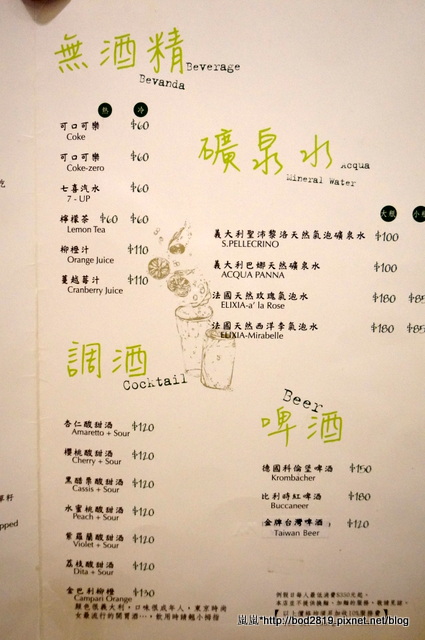 無酒精 Beverage
Bevanda
熱 冷
可口可樂 $60
Coke
可口可樂 $60
Coke-zero
七喜汽水 $60
7 - UP
檸檬茶 $60 $60
Lemon Tea
柳橙汁 $110
Orange Juice
蔓越莓汁 $110
Cranberry Juice
礦泉水 Acqua
Mineral Water
大瓶
義大利聖沛黎洛天然氣泡礦泉水 $100
S.PELLECRINO
義大利巴娜天然礦泉水 $100
ACQUA PANNA
法國天然玫瑰氣泡水 $180
ELIXIA-a' la Rose
法國天然西洋李氣泡水 $180
ELIXIA-Mirabelle
調酒
Cocktail
杏仁酸甜酒 $120
Amaretto + Sour
櫻桃酸甜酒 $120
Cherry + Sour
黑醋栗酸甜酒 $120
Cassis + Sour
水蜜桃酸甜酒 $120
Peach + Sour
紫羅蘭酸甜酒 $120
Violet + Sour
荔枝酸甜酒 $120
Dita + Sour
金巴利柳橙 $150
Campari Orange
顏色很義大利，口味很成年人，東京時尚
女最流行的開胃酒…，飲用時請翹小拇指
Beer
啤酒
德國科倫堡啤酒 $150
Krombacher
比利時紅啤酒 $180
Buccaneer
金牌台灣啤酒 $120
Taiwan Beer
嵐嵐*http://bod2819.pixnet.net/blog